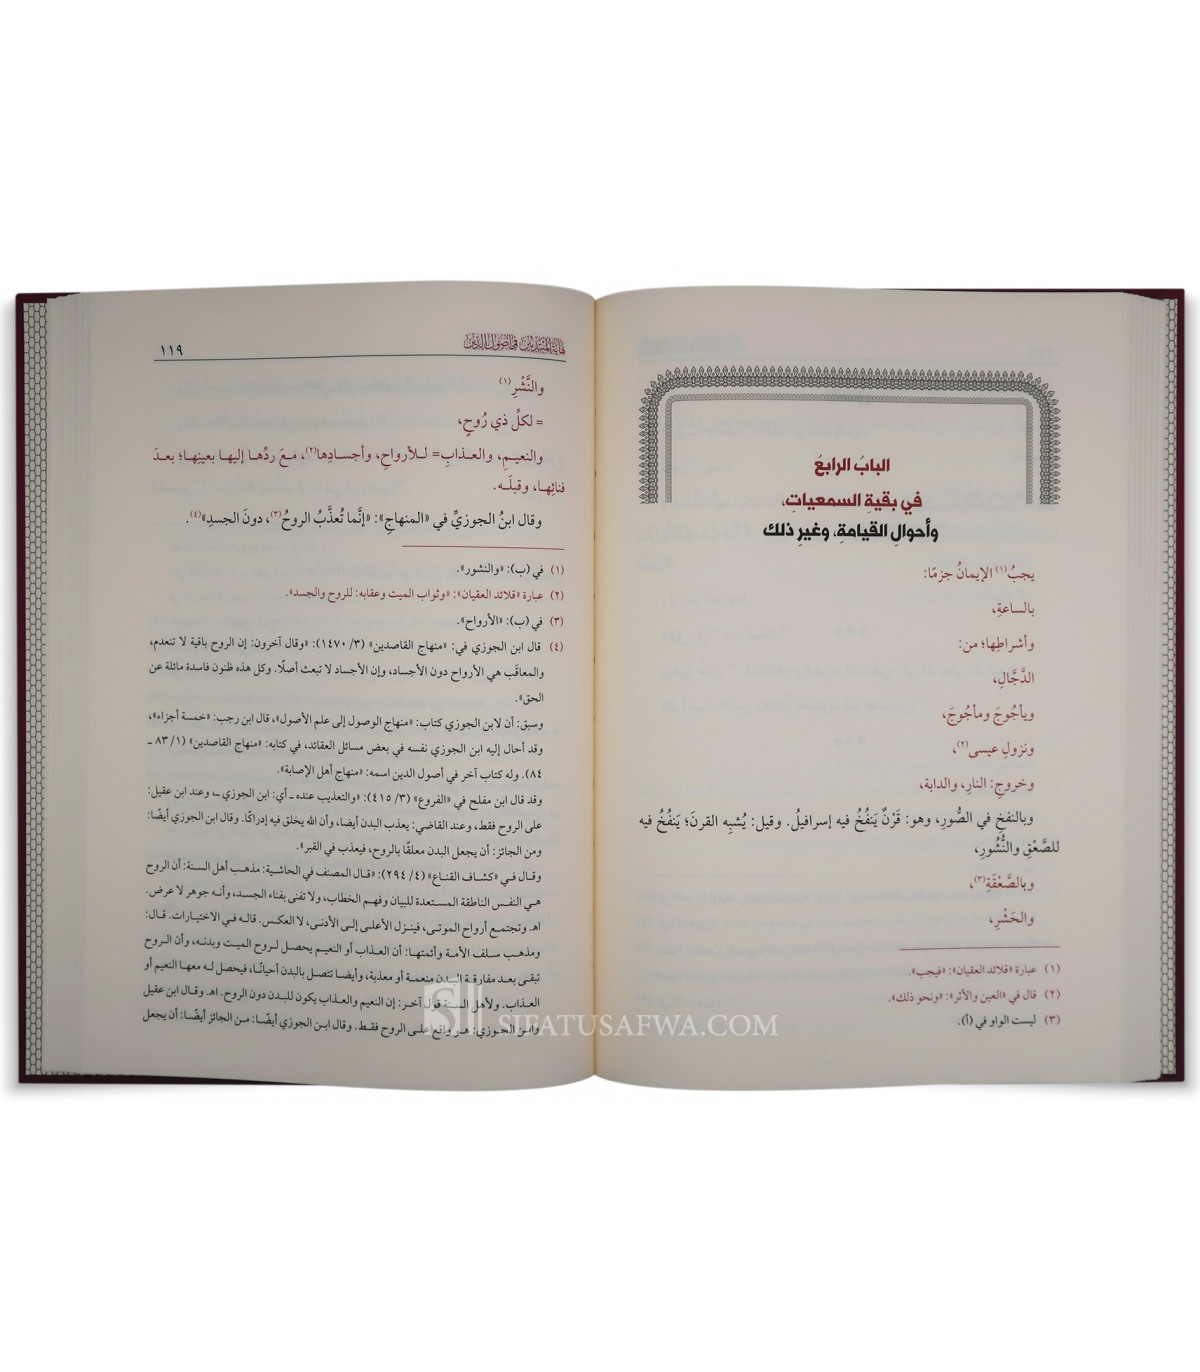 البابُ الرابعُ
في بقيةِ السمعياتِ،
وأحوالِ القيامةِ، وغيرِ ذلك
يجبُ(١) الإيمانُ جزمًا:
بالساعةِ،
وأشراطِها؛ من:
الدَّجَّالِ،
ويأجُوجَ ومأجُوجَ،
ونزولِ عيسى(٢)،
وخروجِ: النارِ، والدابة،
وبالنفخِ في الصُّورِ، وهو: قَرْنٌ يَنفُخُ فيه إسرافيلُ. وقيل: يُشبِه القرنَ؛ يَنفُخُ فيه
للصَّعْقِ والنُّشُورِ،
وبالصَّعْقَةِ(٣)،
والحَشْرِ،
(١) عبارة «قلائد العقيان»: «فيجب».
(٢) قال في «العين والأثر»: «ونحو ذلك».
(٣) ليست الواو في (أ).
نهاية المبتدئين في أصول الدين ١١٩
والنَّشْرِ(١)
= لكلِّ ذي رُوحٍ،
والنعيمِ، والعذابِ= للأرواحِ، وأجسادِها(٢)، معَ ردِّها إليها بعينِها؛ بعدَ
فنائِها، وقبلَه.
وقال ابنُ الجوزيِّ في «المنهاجِ»: «إنَّما تُعذَّبُ الروحُ(٣)، دونَ الجسدِ»(٤).
(١) في (ب): «والنشور».
(٢) عبارة «قلائد العقيان»: «وثواب الميت وعقابه: للروح والجسد».
(٣) في (ب): «الأرواح».
(٤) قال ابن الجوزي في: «منهاج القاصدين» (٣/ ١٤٧٠): «وقال آخرون: إن الروح باقية لا تنعدم،
والمعاقَب هي الأرواح دون الأجساد، وإن الأجساد لا تبعث أصلًا. وكل هذه ظنون فاسدة مائلة عن
الحق».
وسبق: أن لابن الجوزي كتاب: «منهاج الوصول إلى علم الأصول»، قال ابن رجب: «خمسة أجزاء»،
وقد أحال إليه ابن الجوزي نفسه في بعض مسائل العقائد، في كتابه: «منهاج القاصدين» (١/ ٨٣ ـ
٨٤). وله كتاب آخر في أصول الدين اسمه: «منهاج أهل الإصابة».
وقد قال ابن مفلح في «الفروع» (٣/ ٤١٥): «والتعذيب عنده ـ أي: ابن الجوزي ـ، وعند ابن عقيل:
على الروح فقط، وعند القاضي: يعذب البدن أيضا، وأن الله يخلق فيه إدراكًا. وقال ابن الجوزي أيضًا:
ومن الجائز: أن يجعل البدن معلقًا بالروح، فيعذب في القبر».
وقال في «كشاف القناع» (٤/ ٢٩٤): «قال المصنف في الحاشية: مذهب أهل السنة: أن الروح
هي النفس الناطقة المستعدة للبيان وفهم الخطاب، ولا تفنى بفناء الجسد، وأنه جوهر لا عرض.
اهـ. وتجتمع أرواح الموتى، فينزل الأعلى إلى الأدنى، لا العكس. قاله في الاختيارات. قال:
ومذهب سلف الأمة وأئمتها: أن العذاب أو النعيم يحصل لروح الميت وبدنه، وأن الروح
تبقى بعد مفارقة البدن منعمة أو معذبة، وأيضا تتصل بالبدن أحيانًا، فيحصل له معها النعيم أو
العذاب. ولأهل السنة قول آخر: إن النعيم والعذاب يكون للبدن دون الروح. اهـ. وقال ابن عقيل
وابن الجوزي: هو واقع على الروح فقط. وقال ابن الجوزي أيضًا: من الجائز أيضًا: أن يجعل
SIFATUSAFWA.COM